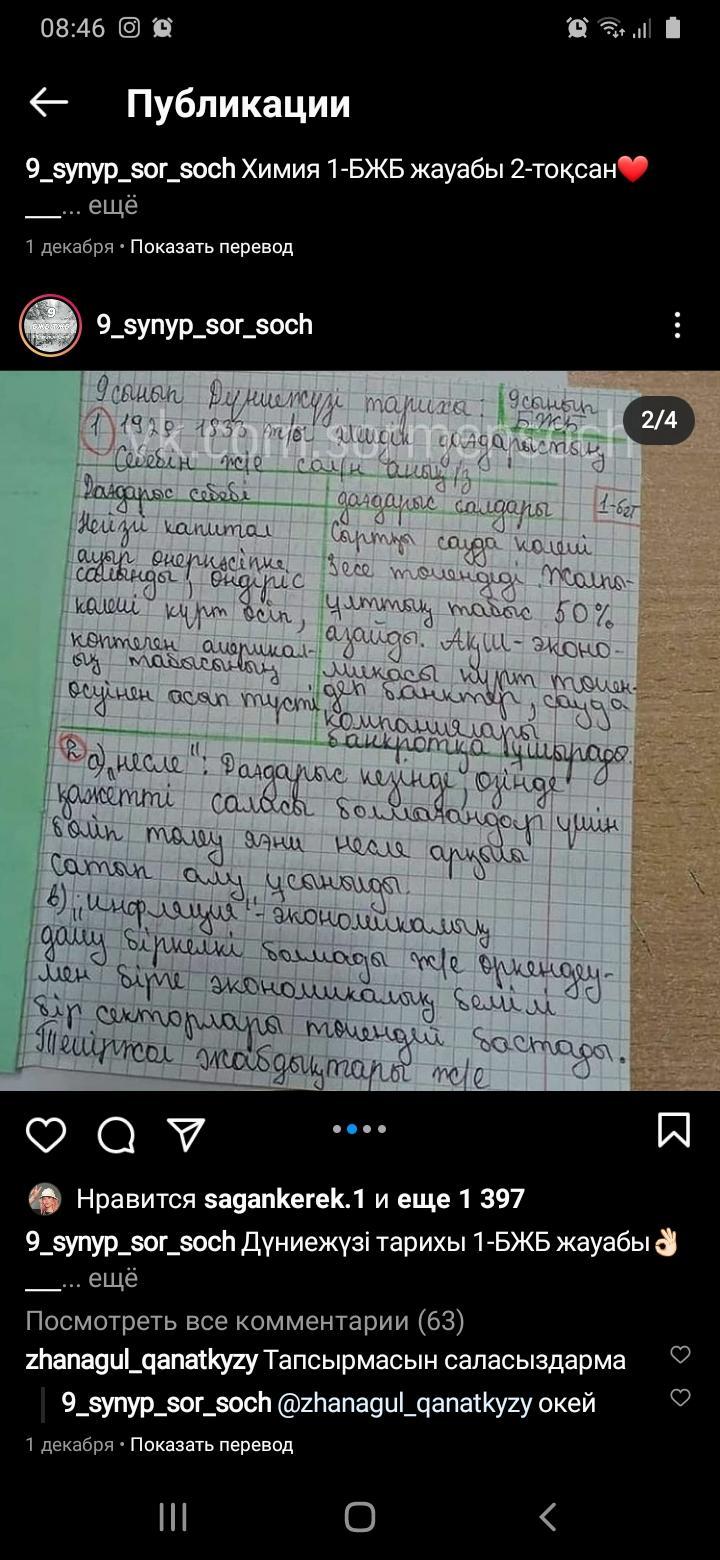 08:46
Публикации
9_synyp_sor_soch Химия 1-БЖБ жауабы 2-тоқсан❤️
___... ещё
1 декабря • Показать перевод
9
9_synyp_sor_soch
2/4
9 сынып Дүниежүзі тарихы:
9 сынып
БЖБ
vk.com
1 1929-1933 ж/ы дағдарыстың
себебін ж/е салын анық/з
1-бет
Дағдарыс себебі
Негізгі капитал
ауыр өнеркәсіпке
салынды, өндіріс
көлемі күрт өсіп,
көптеген америкал-
ық табысының
өсуінен асып түсті
дағдарыс салдары
Сыртқы сауда көлемі
3 есе төмендеді. Жалпы-
ұлттық табыс 50%
азайды. АҚШ-эконо-
микасы күрт төмен-
деп банктер, сауда
компаниялары
банкротқа ұшырады.
2 а) „несие": Дағдарыс кезінде, өзінде
қажетті саласы болмағандар үшін
бөліп төлеу яғни несие арқылы
сатып алу ұсынылды.
в) „инфляция"-экономикалық
даму біркелкі болмады ж/е өркендеу-
мен бірге экономикалық белгілі
бір секторлары төмендей бастады.
Теміржол жабдықтары ж/е
Нравится sagankerek.1 и еще 1 397
9_synyp_sor_soch Дүниежүзі тарихы 1-БЖБ жауабы👌🏻
___... ещё
Посмотреть все комментарии (63)
zhanagul_qanatkyzy Тапсырмасын саласыздарма
9_synyp_sor_soch @zhanagul_qanatkyzy окей
1 декабря • Показать перевод